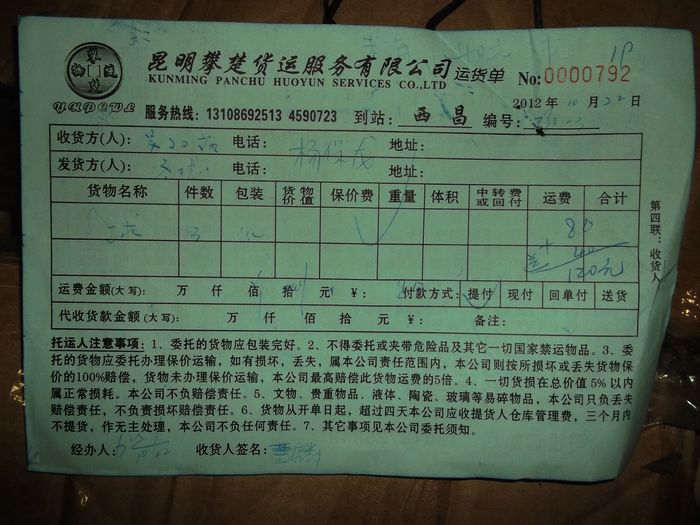 昆明攀楚货运服务有限公司 运货单 No:0000792
KUNMING PANCHU HUOYUN SERVICES CO.,LTD
2012年10月22日
服务热线: 13108692513 4590723 到站: 西昌 编号:
收货方(人): 电话: 地址:
杨保茂
发货方(人): 电话: 地址:
货物名称 件数 包装 货物价值 保价费 重量 体积 中转费或回付 运费 合计
80
+40
120元
运费金额(大写): 万 仟 佰 拾 元 ¥: 付款方式: 提付 现付 回单付 送货
代收货款金额(大写): 万 仟 佰 拾 元 ¥: 备注:
第四联:收货人
托运人注意事项: 1、委托的货物应包装完好。2、不得委托或夹带危险品及其它一切国家禁运物品。3、委
托的货物应委托办理保价运输，如有损坏，丢失，属本公司责任范围内，本公司则按所损坏或丢失货物保
价的100%赔偿，货物未办理保价运输，本公司最高赔偿此货物运费的5倍。4、一切货损在总价值5%以内
属正常损耗。本公司不负赔偿责任。5、文物、贵重物品、液体、陶瓷、玻璃等易碎物品，本公司只负丢失
赔偿责任，不负责损坏赔偿责任。6、货物从开单日起，超过四天本公司应收提货人仓库管理费，三个月内
不提货，作无主处理，本公司不负任何责任。7、其它事项见本公司委托须知。
经办人: 10/22 收货人签名: